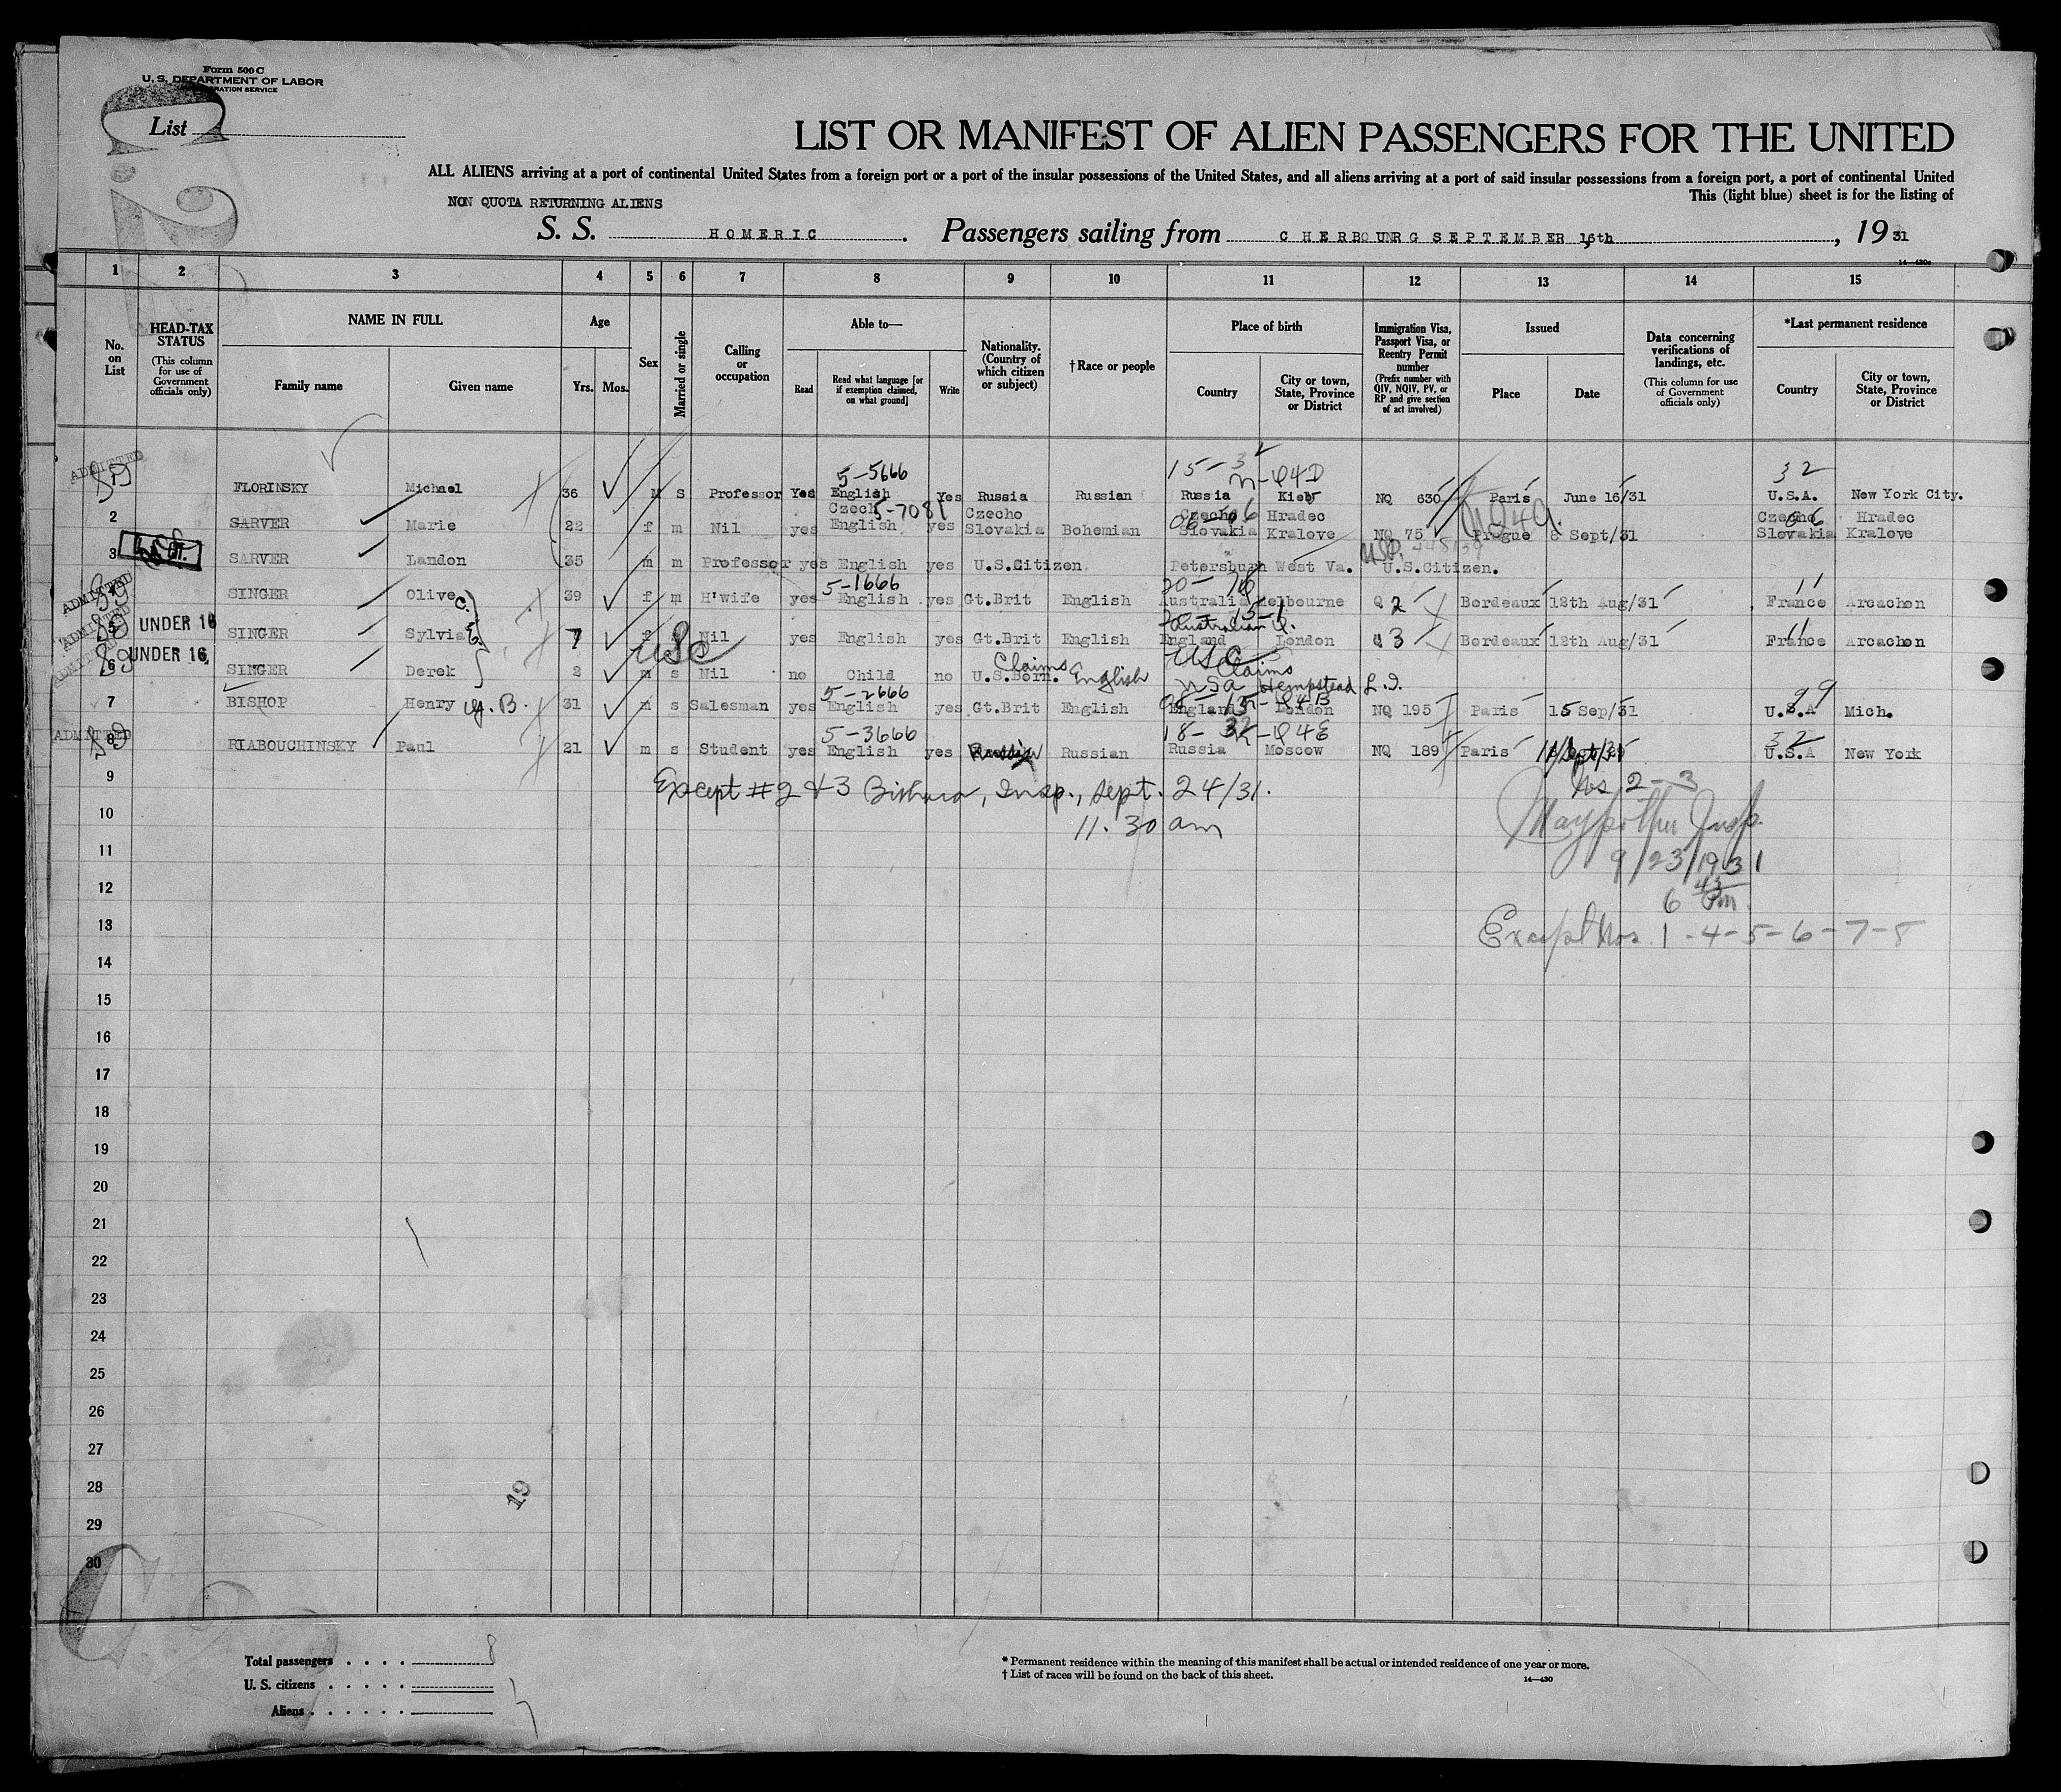 Form 500 C
U. S. DEPARTMENT OF LABOR
IMMIGRATION SERVICE
List
LIST OR MANIFEST OF ALIEN PASSENGERS FOR THE UNITED
ALL ALIENS arriving at a port of continental United States from a foreign port or a port of the insular possessions of the United States, and all aliens arriving at a port of said insular possessions from a foreign port, a port of continental United
This (light blue) sheet is for the listing of
NON QUOTA RETURNING ALIENS
S. S. HOMERIC. Passengers sailing from CHERBOURG SEPTEMBER 16th, 1931
14—430a
1 2 3 4 5 6 7 8 9 10 11 12 13 14 15
No. on List
HEAD-TAX STATUS (This column for use of Government officials only)
NAME IN FULL
Family name Given name
Age
Yrs. Mos.
Sex
Married or single
Calling or occupation
Able to—
Read
Read what language [or if exemption claimed, on what ground]
Write
Nationality. (Country of which citizen or subject)
†Race or people
Place of birth
Country
City or town, State, Province or District
Immigration Visa, Passport Visa, or Reentry Permit number (Prefix number with QIV, NQIV, PV, or RP and give section of act involved)
Issued
Place Date
Data concerning verifications of landings, etc. (This column for use of Government officials only)
*Last permanent residence
Country
City or town, State, Province or District
ADMITTED
5-5666 15-3 n-Q4D 32
1 FLORINSKY Michael 36 M S Professor Yes English Yes Russia Russian Russia Kiev NQ 630 Paris June 16/31 U.S.A. New York City.
5-7081 06
2 SARVER Marie 22 f m Nil yes Czech English yes Czecho Slovakia Bohemian Czecho Slovakia Hradec Kralove NQ 75 Prague 8 Sept/31 Czecho Slovakia Hradec Kralove
3 SARVER Landon 35 m m Professor yes English yes U.S.Citizen Petersburgh West Va. U.S.Citizen.
ADMITTED
5-1666 11
4 SINGER Olive C. 39 f m H'wife yes English yes Gt.Brit English Australia Melbourne Q 2 Bordeaux 12th Aug/31 France Arcachon
ADMITTED
UNDER 16
Australian Q. 11
5 SINGER Sylvia 7 f Nil yes English yes Gt.Brit English England London Q 3 Bordeaux 12th Aug/31 France Arcachon
UNDER 16
USC Claims USC Claims
6 SINGER Derek 2 m s Nil no Child no U.S.Born. English USA Hempstead L.I.
5-2666 n-Q4B 99
7 BISHOP Henry G. B. 31 m s Salesman yes English yes Gt.Brit English England London NQ 195 Paris 15 Sep/31 U.S.A Mich.
ADMITTED
5-3666 18-32 n-Q4E 32
8 RIABOUCHINSKY Paul 21 m s Student yes English yes Russian Russia Moscow NQ 189 Paris U.S.A New York
9
Except #2 &3 Bishara, Insp., Sept. 24/31.
Nos 2-3
10
11.30 am
Insp.
11
9/23/1931
12
6 43 Pm.
13
Except Nos. 1-4-5-6-7-8
14
15
16
17
18
19
20
21
22
23
24
25
26
27
28
19
29
30
Total passengers . . . . 8
U. S. citizens . . . . .
Aliens . . . . . .
* Permanent residence within the meaning of this manifest shall be actual or intended residence of one year or more.
† List of races will be found on the back of this sheet.
14—430